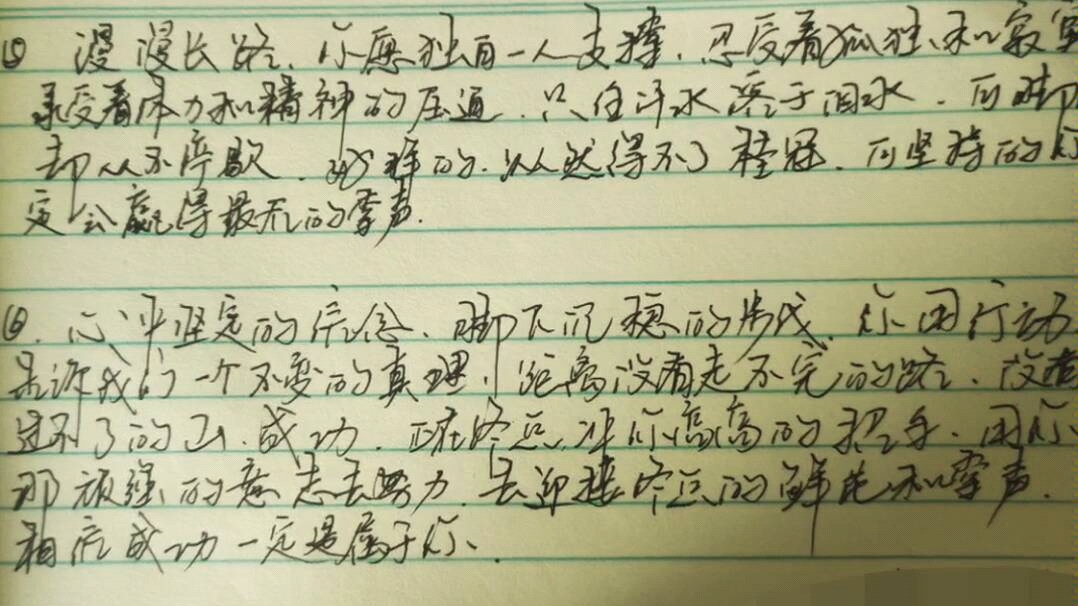 ⑤ 漫漫长路,你愿独自一人支撑,忍受着孤独和寂寞
承受着体力和精神的压迫,只任汗水溶于泪水,可脚
却从不停歇,好样的,纵然得不了桂冠,可坚持的你
定会赢得最后的掌声.
⑥.心中坚定的信念,脚下沉稳的步伐,你用行动
告诉我们一个不变的真理,距离没有走不完的路,没有
过不了的山,成功,正在终点,冲你高高的招手,用你
那顽强的意志去努力,去迎接终点的鲜花和掌声.
相信成功一定是属于你.